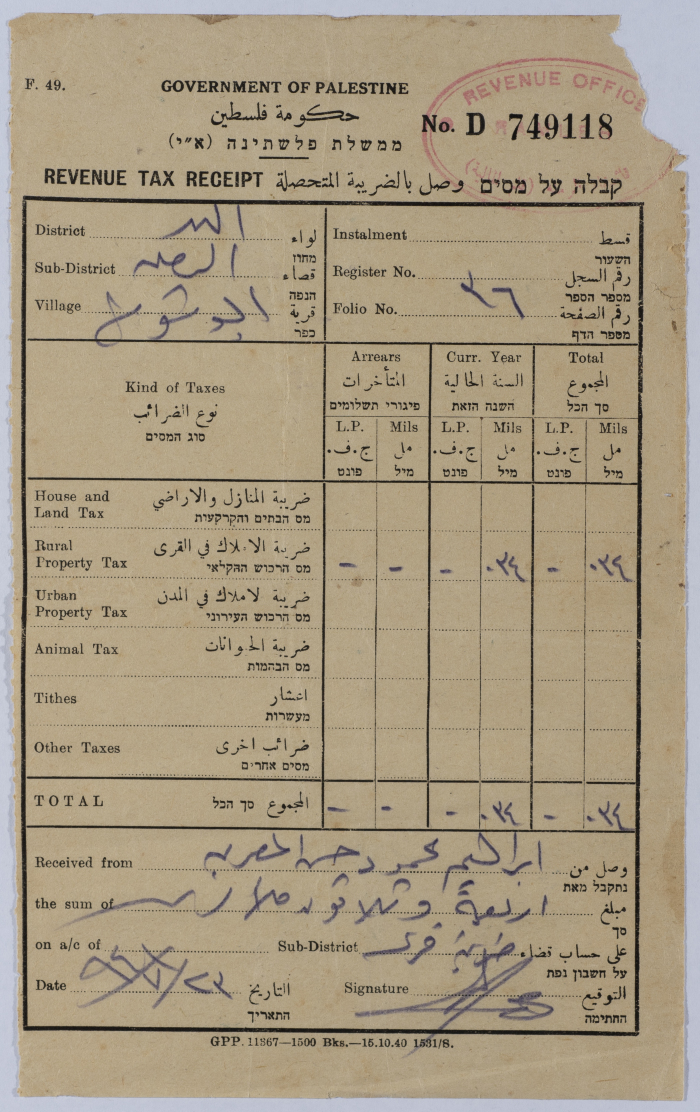 F. 49.
GOVERNMENT OF PALESTINE
حكومة فلسطين
ממשלת פלשתינה (א״י)
REVENUE OFFICE
No. D 749118
REVENUE TAX RECEIPT وصل بالضريبة المتحصلة קבלה על מסים
District لواء
מחוז
Sub-District قضاء
הנפה
Village قرية
כפר
Instalment قسط
השעור
Register No. رقم السجل
מספר הספר
Folio No. ٣٦ رقم الصفحة
מספר הדף
Kind of Taxes
نوع الضرائب
סוג המסים
Arrears
المتأخرات
פיגורי תשלומים
Curr. Year
السنة الحالية
השנה הזאת
Total
المجموع
סך הכל
L.P. Mils L.P. Mils L.P. Mils
ج.ف. مل ج.ف. مل ج.ف. مل
פונט מיל פונט מיל פונט מיל
House and ضريبة المنازل والاراضي
Land Tax מס הבתים והקרקעות
Rural ضريبة الاملاك في القرى
Property Tax מס הרכוש החקלאי – – – ٠٣٤ – ٠٣٤
Urban ضريبة لاملاك في المدن
Property Tax מס הרכוש העירוני
Animal Tax ضريبة الحيوانات
מס הבהמות
Tithes اعشار
מעשרות
Other Taxes ضرائب اخرى
מסים אחרים
TOTAL המجموع סך הכל – – – ٠٣٤ – ٠٣٤
Received from ابراهيم محمود وصل من
נתקבל מאת
the sum of اربعة وثلاثون مبلغ
סך
on a/c of Sub-District على حساب قضاء
על חשבון נפת
Date التاريخ
התאריך
Signature التوقيع
החתימה
GPP. 11367—1500 Bks.—15.10.40 1531/S.